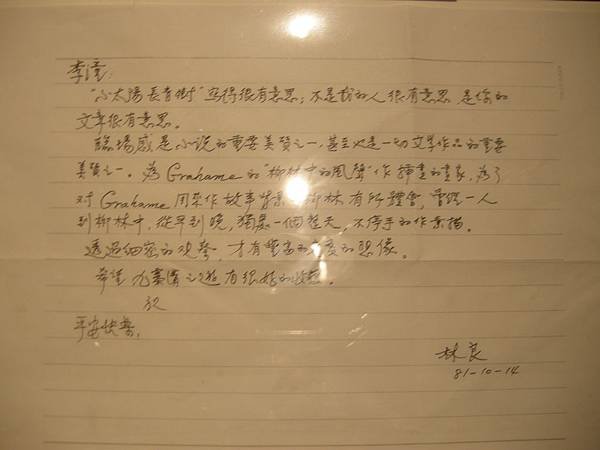 李潼:
"小太陽長青樹"寫得很有意思;不是我的人很有意思,是你的
文章很有意思。
臨場感是小說的重要美質之一,甚至也是一切文學作品的重要
美質之一。為Grahame的"柳林中的風聲"作插畫的畫家,為了
对Grahame用來作故事背景的柳林有所體會,曾經一人
到柳林中,從早到晚,獨處一個整天,不停手的作素描。
透過細密的觀察,才有豐富的的想像。
希望九寨溝之遊有很好的收穫。
祝
平安快樂。
林良
81-10-14